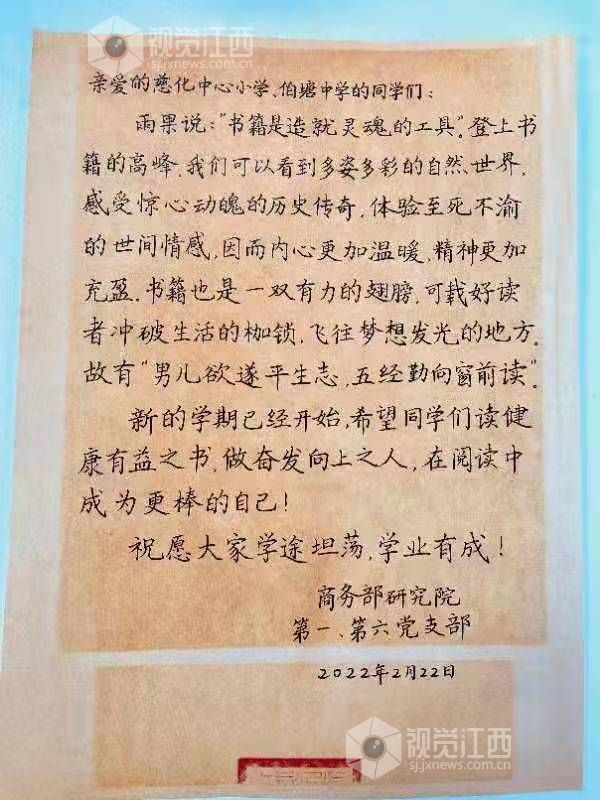 视觉江西
sj.jxnews.com.cn
视觉江西
sj.jxnews.com.cn
亲爱的慈化中心小学、伯塘中学的同学们:
雨果说:"书籍是造就灵魂的工具"。登上书
籍的高峰,我们可以看到多姿多彩的自然世界,
感受惊心动魄的历史传奇,体验至死不渝
的世间情感,因而内心更加温暖,精神更加
充盈。书籍也是一双有力的翅膀,可载好读
者冲破生活的枷锁,飞往梦想发光的地方。
故有"男儿欲遂平生志,五经勤向窗前读"。
新的学期已经开始,希望同学们读健
康有益之书,做奋发向上之人,在阅读中
成为更棒的自己!
祝愿大家学途坦荡,学业有成!
商务部研究院
第一、第六党支部
2022年2月22日
视觉江西
sj.jxnews.com.cn